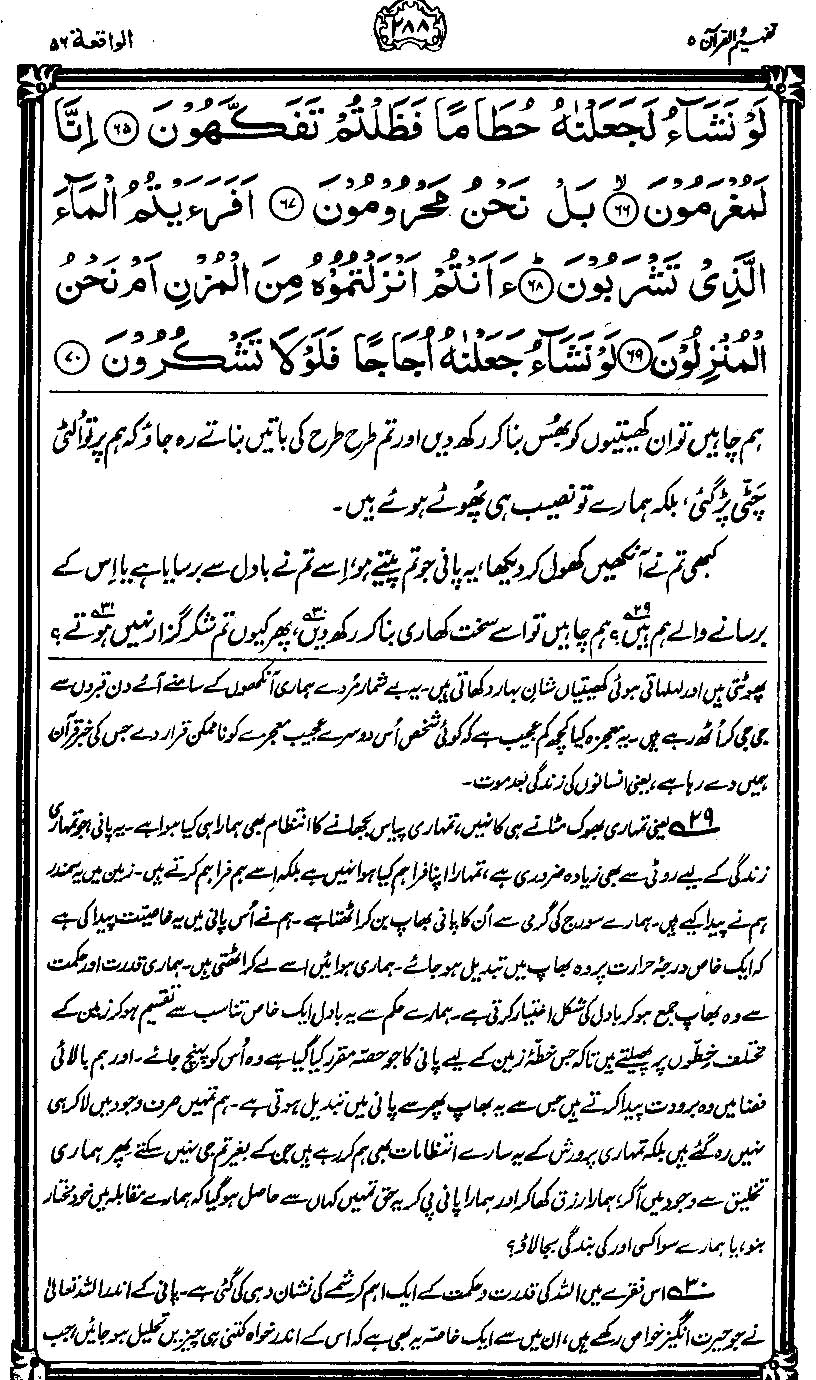 تفہیم القرآن ۵
۲۸۸
الواقعۃ ۵۶
لَوْ نَشَآءُ لَجَعَلْنٰهُ حُطَامًا فَظَلْتُمْ تَفَكَّهُوْنَ ﴿۶۵﴾ اِنَّا
لَمُغْرَمُوْنَ ﴿۶۶﴾ۙ بَلْ نَحْنُ مَحْرُوْمُوْنَ ﴿۶۷﴾ اَفَرَءَيْتُمُ الْمَآءَ
الَّذِيْ تَشْرَبُوْنَ ﴿۶۸﴾ؕ ءَاَنْتُمْ اَنْزَلْتُمُوْهُ مِنَ الْمُزْنِ اَمْ نَحْنُ
الْمُنْزِلُوْنَ ﴿۶۹﴾ لَوْ نَشَآءُ جَعَلْنٰهُ اُجَاجًا فَلَوْلَا تَشْكُرُوْنَ ﴿۷۰﴾
ہم چاہیں تو ان کھیتیوں کو بھُس بنا کر رکھ دیں اور تم طرح طرح کی باتیں بناتے رہ جاؤ کہ ہم پر تو اُلٹی
چَٹّی پڑ گئی، بلکہ ہمارے تو نصیب ہی پھُوٹے ہوئے ہیں۔
کبھی تم نے آنکھیں کھول کر دیکھا، یہ پانی جو تم پیتے ہو، اسے تم نے بادل سے برسایا ہے یا اِس کے
برسانے والے ہم ہیں۲۹؟ ہم چاہیں تو اسے سخت کھاری بنا کر رکھ دیں۳۰، پھر کیوں تم شکر گزار نہیں ہوتے۳۱؟
پھوٹتی ہیں اور لہلہاتی ہوئی کھیتیاں شانِ بہار دکھاتی ہیں۔ یہ بے شمار مُردے ہماری آنکھوں کے سامنے آئے دن قبروں سے
جی جی کر اُٹھ رہے ہیں۔ یہ معجزہ کیا کچھ کم عجیب ہے کہ کوئی شخص اُس دوسرے عجیب معجزے کو ناممکن قرار دے جس کی خبر قرآن
ہمیں دے رہا ہے، یعنی انسانوں کی زندگی بعد موت۔
۲۹ یعنی تمہاری بھوک مٹانے ہی کا نہیں، تمہاری پیاس بجھانے کا انتظام بھی ہمارا ہی کیا ہوا ہے۔ یہ پانی، جو تمہاری
زندگی کے لیے روٹی سے بھی زیادہ ضروری ہے، تمہارا اپنا فراہم کیا ہوا نہیں ہے بلکہ اسے ہم فراہم کرتے ہیں۔ زمین میں یہ سمندر
ہم نے پیدا کیے ہیں۔ ہمارے سورج کی گرمی سے اُن کا پانی بھاپ بن کر اٹھتا ہے۔ ہم نے اُس پانی میں یہ خاصیت پیدا کی ہے
کہ ایک خاص درجۂ حرارت پر وہ بھاپ میں تبدیل ہو جائے۔ ہماری ہوائیں اسے لے کر اٹھتی ہیں۔ ہماری قدرت اور حکمت
سے وہ بھاپ جمع ہو کر بادل کی شکل اختیار کرتی ہے۔ ہمارے حکم سے یہ بادل ایک خاص تناسب سے تقسیم ہو کر زمین کے
مختلف خِطّوں پر پھیلتے ہیں تاکہ جس خطۂ زمین کے لیے پانی کا جو حصّہ مقرر کیا گیا ہے وہ اُس کو پہنچ جائے۔ اور ہم بالائی
فضا میں وہ برودت پیدا کرتے ہیں جس سے یہ بھاپ پھر سے پانی میں تبدیل ہوتی ہے۔ ہم تمہیں صرف وجود میں لا کر ہی
نہیں رہ گئے ہیں بلکہ تمہاری پرورش کے یہ سارے انتظامات بھی ہم کر رہے ہیں جن کے بغیر تم جی نہیں سکتے پھر ہماری
تخلیق سے وجود میں آ کر، ہمارا رزق کھا کر اور ہمارا پانی پی کر یہ حق تمہیں کہاں سے حاصل ہو گیا کہ ہمارے مقابلہ میں خود مختار
بنو، یا ہمارے سوا کسی اور کی بندگی بجا لاؤ؟
۳۰ اس فقرے میں اللہ کی قدرت و حکمت کے ایک اہم کرشمے کی نشان دہی کی گئی ہے۔ پانی کے اندر اللہ تعالیٰ
نے جو حیرت انگیز خواص رکھے ہیں، ان میں سے ایک خاصّہ یہ بھی ہے کہ اس کے اندر خواہ کتنی ہی چیزیں تحلیل ہو جائیں، جب